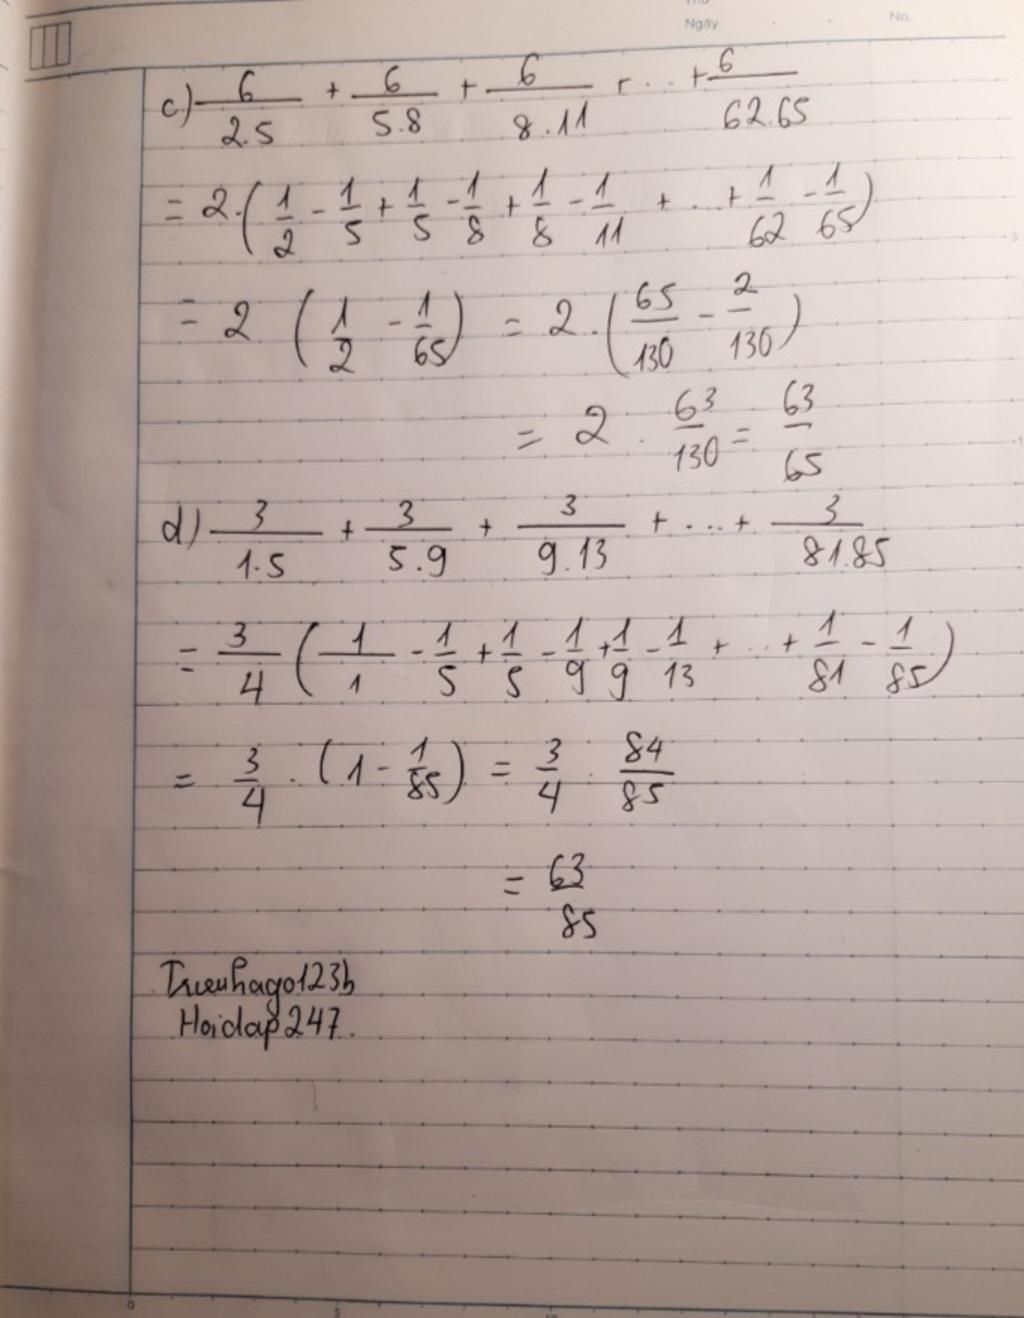 Ngày No.
c) 6/2.5 + 6/5.8 + 6/8.11 + ... + 6/62.65
= 2.(1/2 - 1/5 + 1/5 - 1/8 + 1/8 - 1/11 + ... + 1/62 - 1/65)
= 2 (1/2 - 1/65) = 2.(65/130 - 2/130)
= 2 . 63/130 = 63/65
d) 3/1.5 + 3/5.9 + 3/9.13 + ... + 3/81.85
= 3/4 (1/1 - 1/5 + 1/5 - 1/9 + 1/9 - 1/13 + ... + 1/81 - 1/85)
= 3/4 . (1 - 1/85) = 3/4 . 84/85
= 63/85
Hoidap247.
0 5